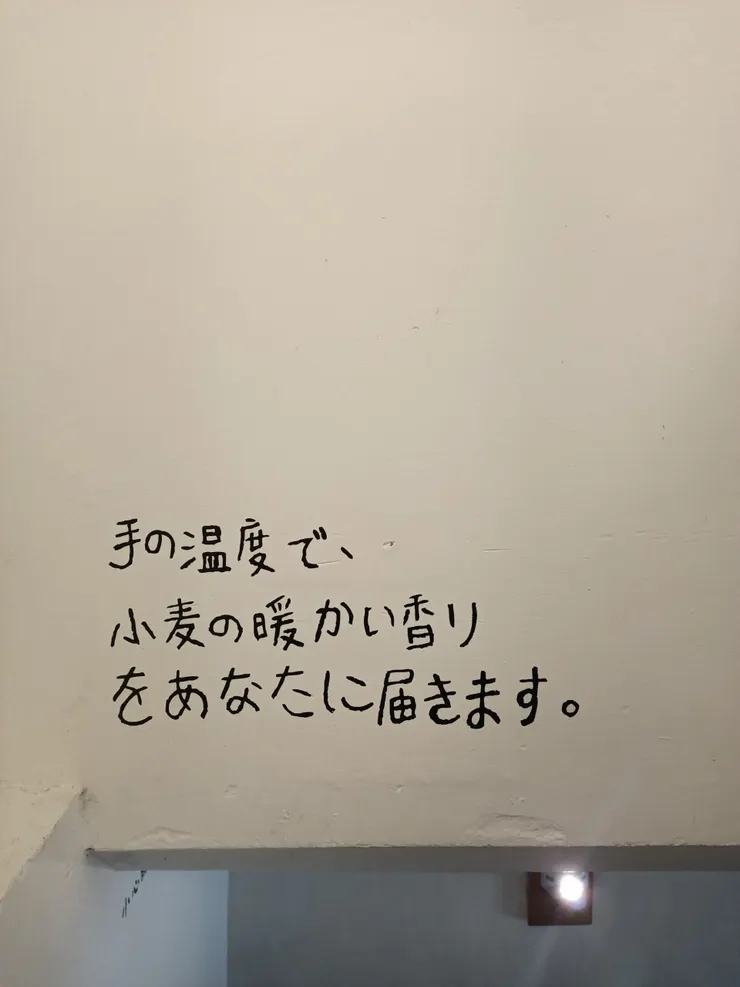 手の温度で、
小麦の暖かい香り
をあなたに届きます。